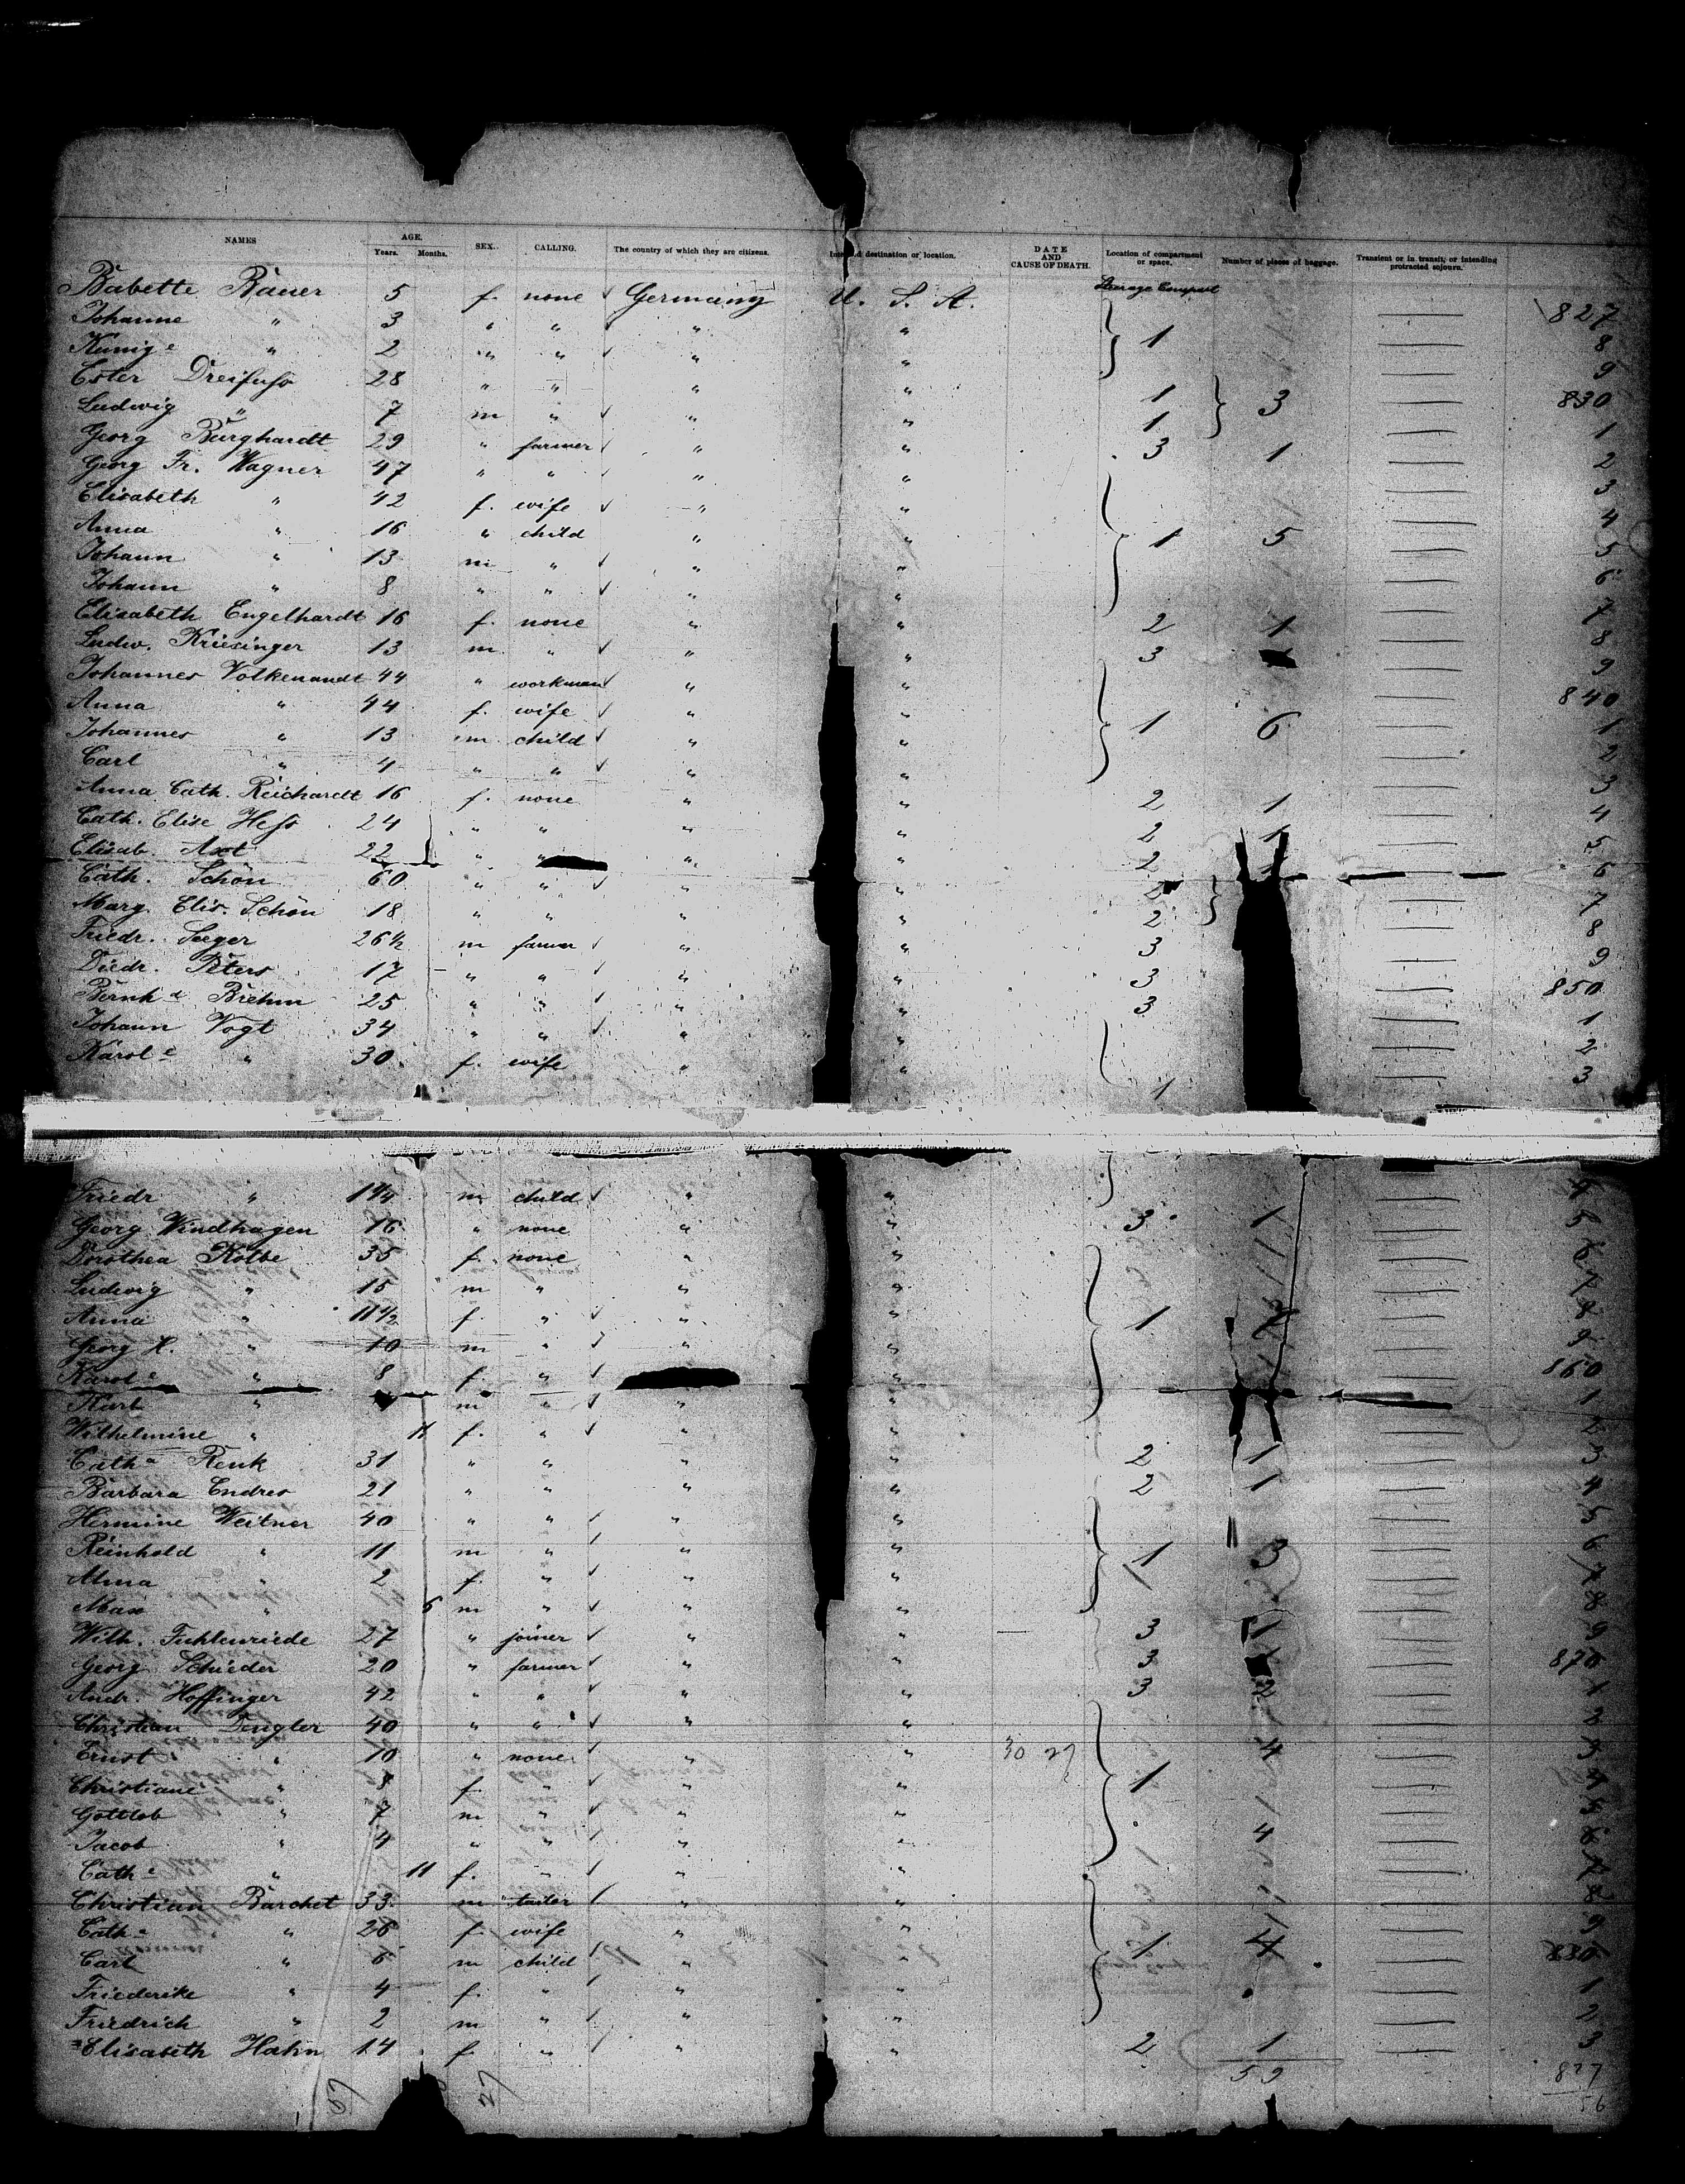 NAMES AGE. Years. Months. SEX. CALLING. The country of which they are citizens. Intended destination or location. DATE AND CAUSE OF DEATH. Location of compartment or space. Number of pieces of baggage. Transient or in transit, or intending protracted sojourn.
Babette Bauer 5 f. none ✓ Germany U. S. A. Steerage Compart 827
Johanne " 3 " " ✓ " " 1 — 8
Kunig e " 2 " " ✓ " " — 9
Ester Dreifuss 28 " " " " 1 3 — 830
Ludwig " 7 m " ✓ " " 1 — 1
Georg Burghardt 29 " farmer ✓ " " 3 1 — 2
Georg Fr. Wagner 47 " " ✓ " " — 3
Elisabeth " 42 f. wife ✓ " " — 4
Anna " 16 " child " " 1 5 — 5
Johann " 13 m " ✓ " " — 6
Johann " 8 " " ✓ " " — 7
Elisabeth Engelhardt 16 f. none " " 2 1 — 8
Ludw. Kriesinger 13 m. " ✓ " " 3 — 9
Johannes Volkenandt 44 " workman ✓ " " — 840
Anna " 44 f. wife ✓ " " 1 6 — 1
Johannes " 13 m child ✓ " " — 2
Carl " 4 " " ✓ " " — 3
Anna Cath. Reichardt 16 f. none " " 2 1 — 4
Cath. Elise Hess 24 " " " " 2 1 — 5
Elisab. Axt 22 " " " " 2 1 — 6
Cath. Schön 60 " " ✓ " " 2 — 7
Marg. Elis. Schön 18 " " " " 2 — 8
Friedr. Seeger 26½ m farmer ✓ " " 3 — 9
Diedr. Peters 17 " " ✓ " " 3 — 850
Bernh d Brehm 25 " " ✓ " " 3 — 1
Johann Vogt 34 " " ✓ " " — 2
Karol e " 30 f. wife " " 1 — 3
Friedr " 1¼ m child ✓ " " — 4
Georg Windhagen 16 " none " " 3 1 — 5
Dorothea Kolbe 35 f. none " " — 6
Ludwig " 15 m " " " — 7
Anna " 11½ f. " ✓ " " 1 — 8
Georg H. " 10 m " ✓ " " — 9
Karol e " 8 f. " ✓ " " — 860
Karl " m " ✓ " " — 1
Wilhelmine " 11 f. " ✓ " " — 2
Cath a Renk 31 " " " " 2 1 — 3
Barbara Endres 21 " " " " 2 1 — 4
Hermine Weitner 40 " " ✓ " " — 5
Reinhold " 11 m " ✓ " " 1 3 — 6
Alma " 2 f. " ✓ " " — 7
Max " 6 m " ✓ " " — 8
Wilh. Fuhlenriede 27 " joiner ✓ " " 3 1 — 9
Georg Schieder 20 " farmer ✓ " " 3 — 870
Andr. Hoffinger 42 " " ✓ " " 3 2 — 1
Christian Dengler 40 " " ✓ " " — 2
Ernst " 10 " none ✓ " " 30 27 4 — 3
Christiane " 8 f. " ✓ " " 1 — 4
Gottlob " 7 m " ✓ " " — 5
Jacob " 4 " " ✓ " " 4 — 6
Cath e " 11 f. " ✓ " " — 7
Christian Barchet 33 m tailor ✓ " " — 8
Cath e " 26 f. wife " " 1 4 — 9
Carl " 6 m child ✓ " " — 880
Friederike " 4 f. " ✓ " " — 1
Friedrich " 2 m " ✓ " " — 2
Elisabeth Hahn 14 f. " ✓ " " 2 1 — 3
57 27 59 827
56